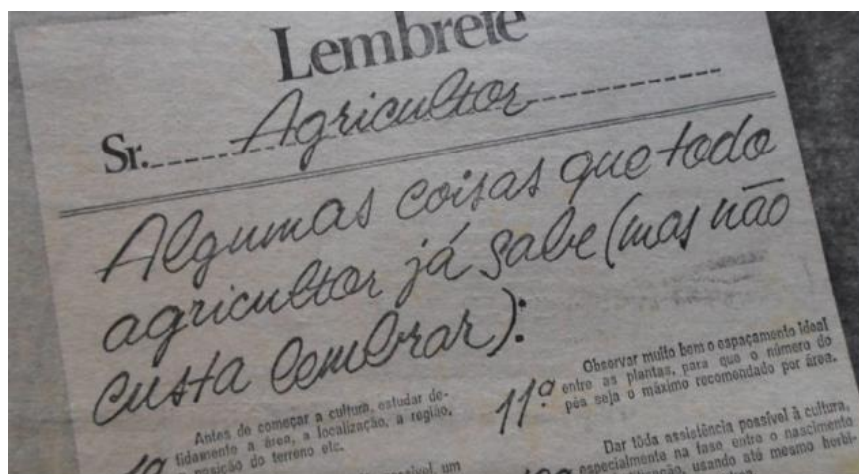 Lembrete
Sr. Agricultor
Algumas coisas que todo
agricultor já sabe (mas não
custa lembrar):
Antes de começar a cultura, estudar de-
fidamente a área, a localização, a região,
posição do terreno etc.
11º
Observar muito bem o espaçamento ideal
entre as plantas, para que o número de
pés seja o máximo recomendado por área.
Dar tôda assistência possível à cultura,
especialmente na fase entre o nascimento
usando até mesmo herbi-